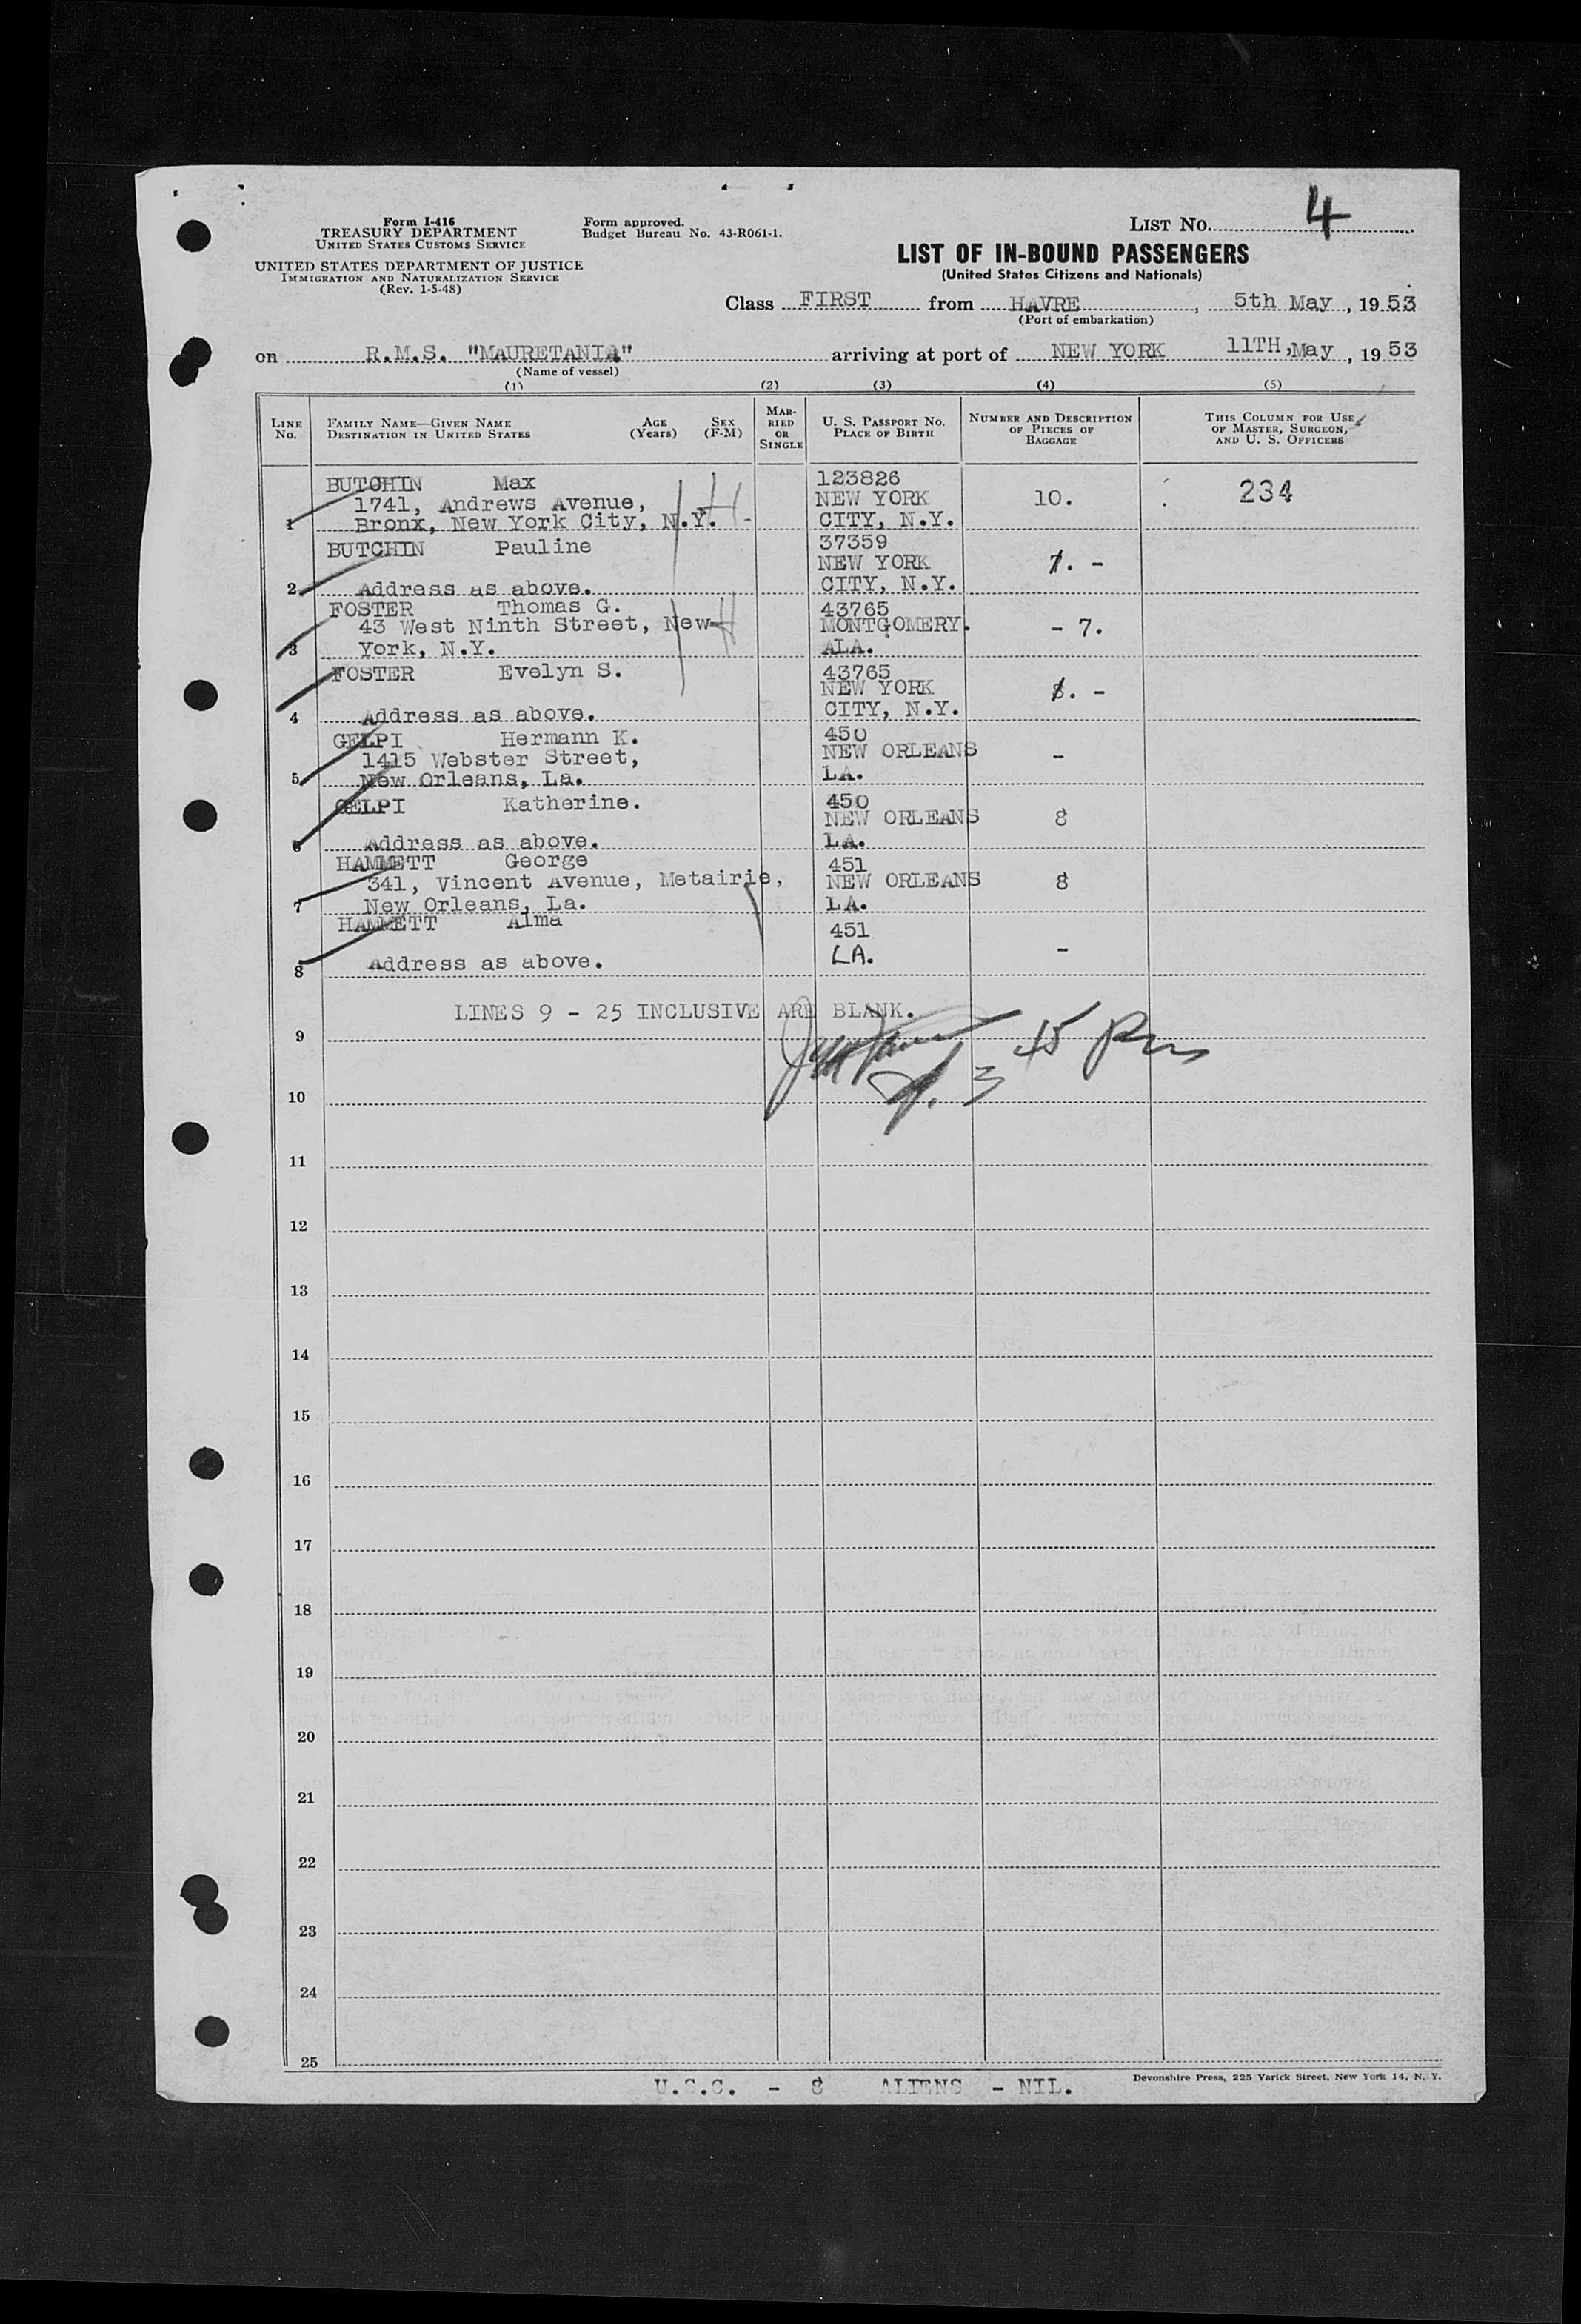 Form I-416
TREASURY DEPARTMENT
UNITED STATES CUSTOMS SERVICE
UNITED STATES DEPARTMENT OF JUSTICE
IMMIGRATION AND NATURALIZATION SERVICE
(Rev. 1-5-48)
Form approved.
Budget Bureau No. 43-R061-1.
LIST No. 4
LIST OF IN-BOUND PASSENGERS
(United States Citizens and Nationals)
Class FIRST from HAVRE, 5th May, 1953
(Port of embarkation)
on R.M.S. "MAURETANIA" arriving at port of NEW YORK 11TH, May, 1953
(Name of vessel)
(1) (2) (3) (4) (5)
LINE No.
FAMILY NAME—GIVEN NAME
DESTINATION IN UNITED STATES
AGE (Years)
SEX (F-M)
MARRIED OR SINGLE
U. S. PASSPORT NO.
PLACE OF BIRTH
NUMBER AND DESCRIPTION OF PIECES OF BAGGAGE
THIS COLUMN FOR USE OF MASTER, SURGEON, AND U. S. OFFICERS
BUTCHIN Max 123826
1741, Andrews Avenue, NEW YORK 10. 234
1 Bronx, New York City, N.Y. CITY, N.Y.
BUTCHIN Pauline 37359
NEW YORK 7. -
2 Address as above. CITY, N.Y.
FOSTER Thomas G. 43765
43 West Ninth Street, New MONTGOMERY. - 7.
3 York, N.Y. ALA.
FOSTER Evelyn S. 43765
NEW YORK 8. -
4 Address as above. CITY, N.Y.
GELPI Hermann K. 450
1415 Webster Street, NEW ORLEANS -
5 New Orleans, La. LA.
GELPI Katherine. 450
NEW ORLEANS 8
6 Address as above. LA.
HAMMETT George 451
341, Vincent Avenue, Metairie, NEW ORLEANS 8
7 New Orleans, La. LA.
HAMMETT Alma 451
LA. -
8 Address as above.
LINES 9 - 25 INCLUSIVE ARE BLANK.
9
3 45 Pm
10
11
12
13
14
15
16
17
18
19
20
21
22
23
24
25
U.S.C. - 8 ALIENS - NIL.
Devonshire Press, 225 Varick Street, New York 14, N. Y.